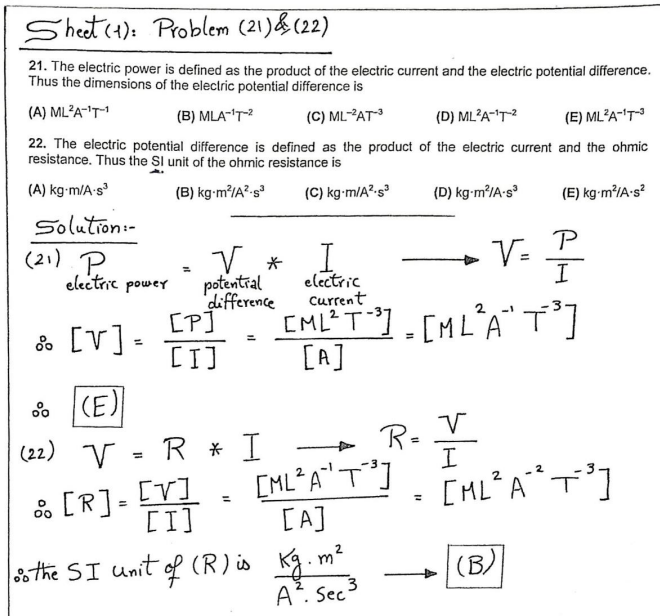 Sheet (1): Problem (21) & (22)
21. The electric power is defined as the product of the electric current and the electric potential difference.
Thus the dimensions of the electric potential difference is
(A) ML²A⁻¹T⁻¹ (B) MLA⁻¹T⁻² (C) ML⁻²AT⁻³ (D) ML²A⁻¹T⁻² (E) ML²A⁻¹T⁻³
22. The electric potential difference is defined as the product of the electric current and the ohmic
resistance. Thus the SI unit of the ohmic resistance is
(A) kg·m/A·s³ (B) kg·m²/A²·s³ (C) kg·m/A²·s³ (D) kg·m²/A·s³ (E) kg·m²/A·s²
Solution:-
(21) P = V * I ⟶ V = P/I
electric power potential electric
difference current
∴ [V] = [P]/[I] = [ML²T⁻³]/[A] = [ML²A⁻¹T⁻³]
∴ (E)
(22) V = R * I ⟶ R = V/I
∴ [R] = [V]/[I] = [ML²A⁻¹T⁻³]/[A] = [ML²A⁻²T⁻³]
∴ the SI unit of (R) is Kg.m²/A².Sec³ ⟶ (B)